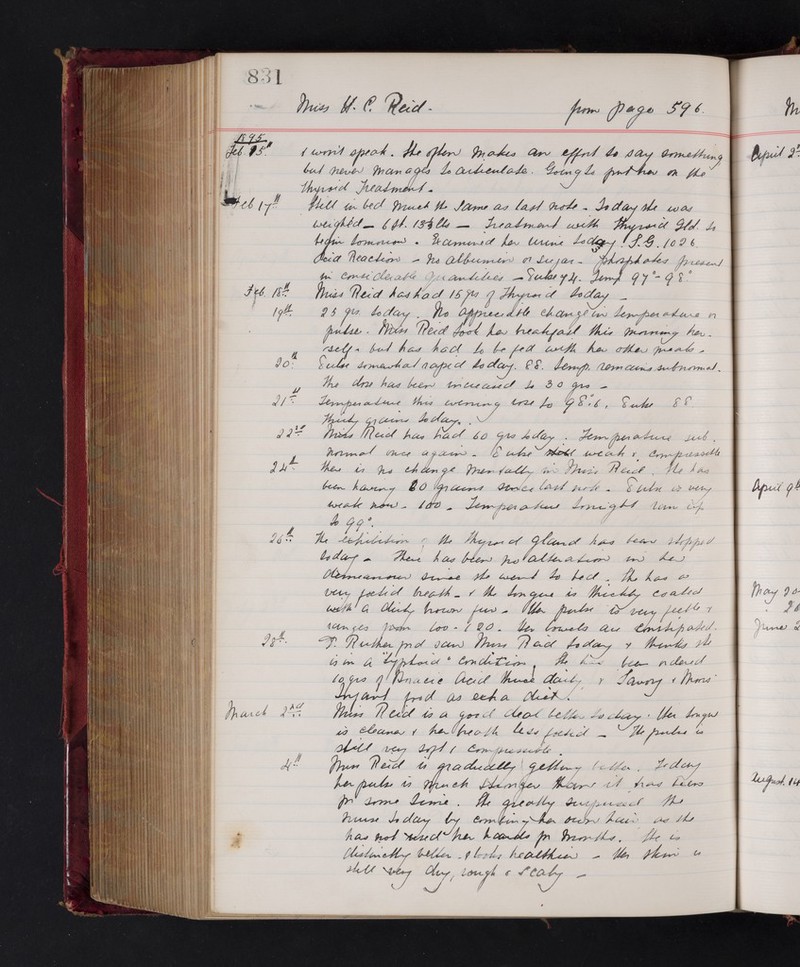 831
Miss H. C. Reid. from page 596.
1895
Feb 15th & won't speak. She often makes an effort to say something
but never manages to articulate. Going to put her on the
Thyroid Treatment.
Feb 17th Still in bed much the same as last note. Today she was
weighed - 6 st. 13¾ lbs - Treatment with Thyroid Gld. to
begin tomorrow. Examined her urine today. S.G. 1026.
Acid Reaction - No albumin or sugar - phosphates present
in considerable quantities - Pulse 74. Temp 97°-98°.
Feb. 18th Miss Reid has had 15 grs of Thyroid today -
19th 25 grs. today. No appreciable change in temperature or
pulse. Miss Reid took her breakfast this morning her-
-self - but has had to be fed with her other meals -
20th Pulse somewhat rapid today. 88. temp. remains subnormal.
The dose has been increased to 30 grs -
21st Temperature this evening rose to 98°.6. Pulse 88
Thirty grains today.
22nd Miss Reid has had 60 grs today. Temperature sub.
normal once again - Pulse weak & compressible
24th There is no change mentally in Miss Reid. She has
been having grains since last note. Pulse is very
weak now - 100 - Temperature tonight ran up
to 99°.
26th The exhibition of the Thyroid gland has been stopped
today - There has been no alteration in her
demeanour since she went to bed. She has a
very foetid breath - & the tongue is thickly coated
with a dirty brown fur - Her pulse is very feeble &
ranges from 100 - 120. Her bowels are constipated.
28th Dr. Rutherford saw Miss Reid today & thinks she
is in a "typhoid" condition. She has been ordered
10 grs of Boracic Acid thrice daily & Savory & Moors'
Infant food as extra diet.
March 2nd Miss Reid is a good deal better today. Her tongue
is cleaner & her breath less foetid - The pulse is
still very soft & compressible.
4th Miss Reid is gradually getting better. Today
her pulse is much stronger than it has been
for some time. She greatly surprised the
nurse today by combing her own hair as she
has not used her hands for months. She is
distinctly better - & looks healthier - Her skin is
still very dry, rough & scaly -
April 2
April 9
May 20
June 2
August 14